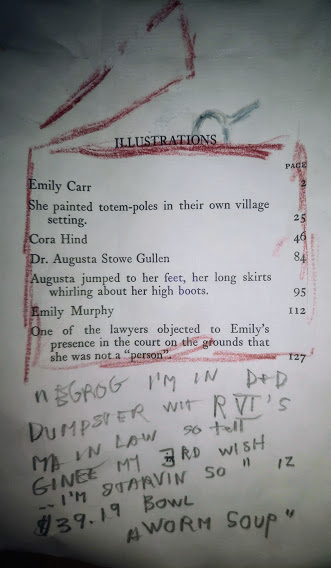 ILLUSTRATIONS
PAGE
Emily Carr 2
She painted totem-poles in their own village
setting. 25
Cora Hind 46
Dr. Augusta Stowe Gullen 84
Augusta jumped to her feet, her long skirts
whirling about her high boots. 95
Emily Murphy 112
One of the lawyers objected to Emily's
presence in the court on the grounds that
she was not a "person". 127
I'M IN D+D
DUMPSTER WIT R VI'S
MA IN LAW SO tell
MY 3RD WISH
I'M STARVIN SO " 12
$39.19 BOWL
A WORM SOUP"